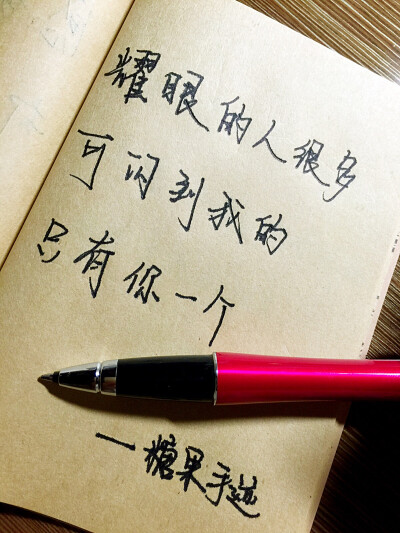 耀眼的人很多
可闪到我的
只有你一个
一糖果手迹